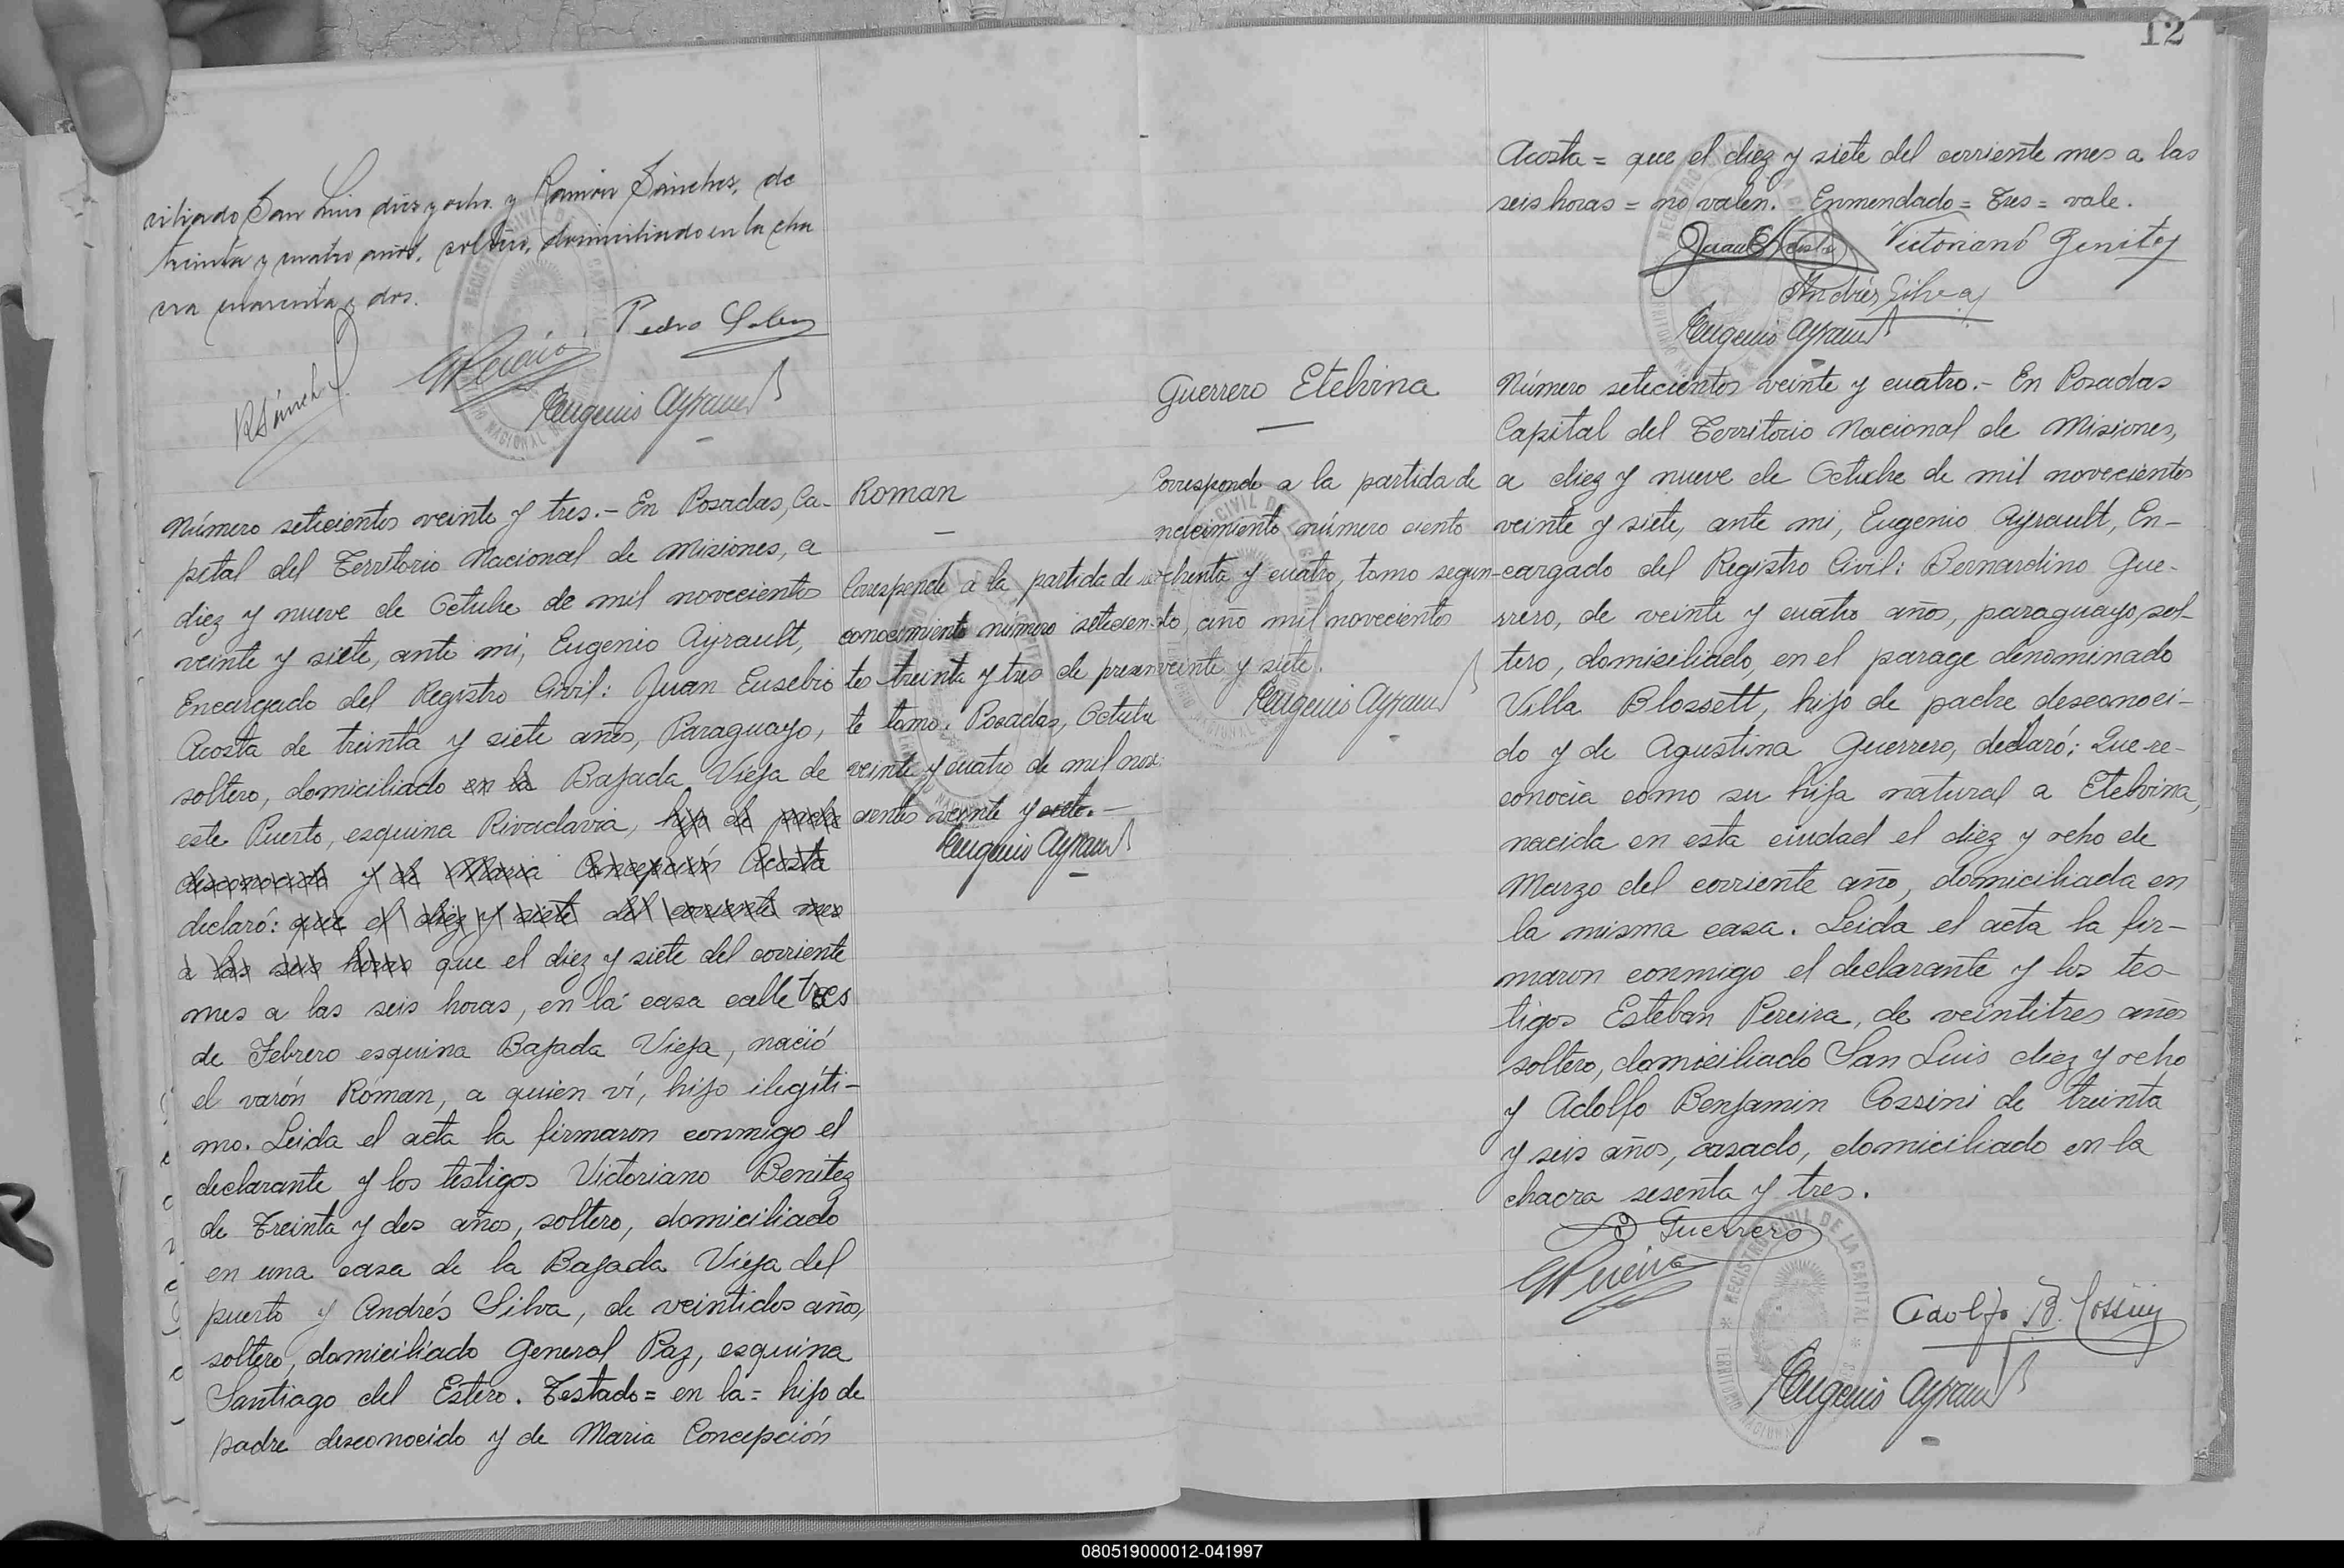 ciliado San Luis diez y ocho y Ramón Sánches, de
treinta y cuatro años, soltero, domiciliado en la cha
cra cuarenta y dos.
Pedro
EPereira
RSánchez
Eugenio Ayrault
Número setecientos veinte y tres.- En Posadas, Ca-
pital del Territorio Nacional de Misiones, a
diez y nueve de Octubre de mil novecientos
veinte y siete, ante mi, Eugenio Ayrault,
Encargado del Registro Civil: Juan Eusebio
Acosta de treinta y siete años, Paraguayo,
soltero, domiciliado en la Bajada Vieja de
este Puerto, esquina Rivadavia, hijo de padre
desconocido y de Maria Concepción Acosta
declaró: que el diez y siete del corriente mes
a las seis horas que el diez y siete del corriente
mes a las seis horas, en la casa calle tres
de Febrero esquina Bajada Vieja, nació
el varón Román, a quien ví, hijo ilegíti-
mo. Leida el acta la firmaron conmigo el
declarante y los testigos Victoriano Benitez
de Treinta y dos años, soltero, domiciliado
en una casa de la Bajada Vieja del
puerto y Andrés Silva, de veintidos años,
soltero, domiciliado General Paz, esquina
Santiago del Estero. Testado = en la = hijo de
padre desconocido y de Maria Concepción
Roman
Corresponde a la partida de re
conocimiento número setecien-
tos treinta y tres de presen
te tomo. Posadas, Octubre
veinte y cuatro de mil nove
cientos veinte y siete.-
Eugenio Ayrault
12
Guerrero Etelvina
Corresponde a la partida de
nacimiento número ciento
ochenta y cuatro, tomo segun-
do, año mil novecientos
veinte y siete.
Eugenio Ayrault
Acosta = que el diez y siete del corriente mes a las
seis horas = no valen. Enmendado = Tres = vale.
Juan E Acosta Victoriano Benitez
Andrés Silva
Eugenio Ayrault
Número setecientos veinte y cuatro.- En Posadas
Capital del Territorio Nacional de Misiones,
a diez y nueve de Octubre de mil novecientos
veinte y siete, ante mi, Eugenio Ayrault, En-
cargado del Registro Civil: Bernardino Gue-
rrero, de veinte y cuatro años, paraguayo, sol-
tero, domiciliado, en el parage denominado
Villa Blossett, hijo de padre desconoci-
do y de Agustina Guerrero, declaró: Que re-
conocia como su hija natural a Etelvina,
nacida en esta ciudad el diez y ocho de
Marzo del corriente año, domiciliada en
la misma casa. Leida el acta la fir-
maron conmigo el declarante y los tes-
tigos Esteban Pereira, de veintitres años
soltero, domiciliado San Luis diez y ocho
y Adolfo Benjamin Cossini de treinta
y seis años, casado, domiciliado en la
chacra sesenta y tres.
B Guerrero
EPereira
Adolfo B. Cossini
Eugenio Ayrault
REGISTRO CIVIL DE LA CAPITAL
TERRITORIO NACIONAL
080519000012-041997